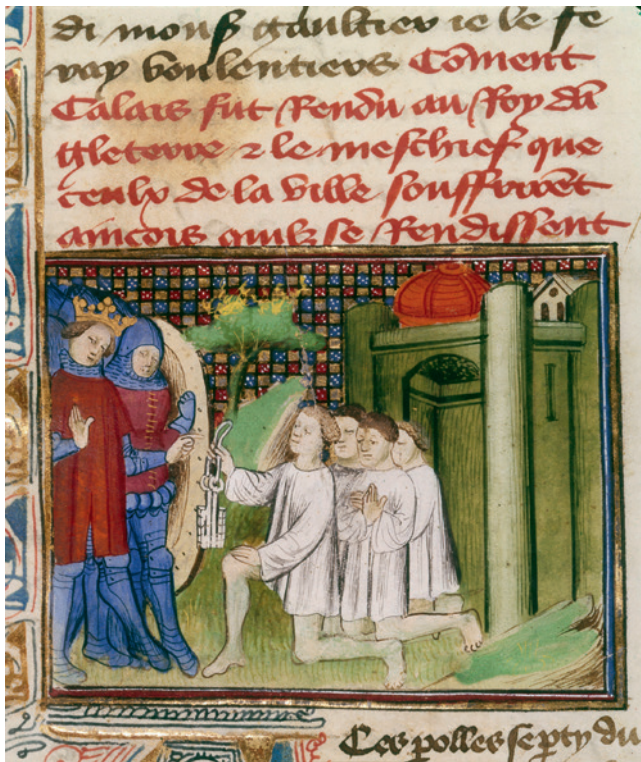 di mons gaultier ie le fe
ray voulentiers Coment
Calais fut Rendu au Roy dā
gleterre ⁊ le meschief que
ceulx de la ville souffrirēt
aincois quilz se Rendissent
Ces polles se pty du